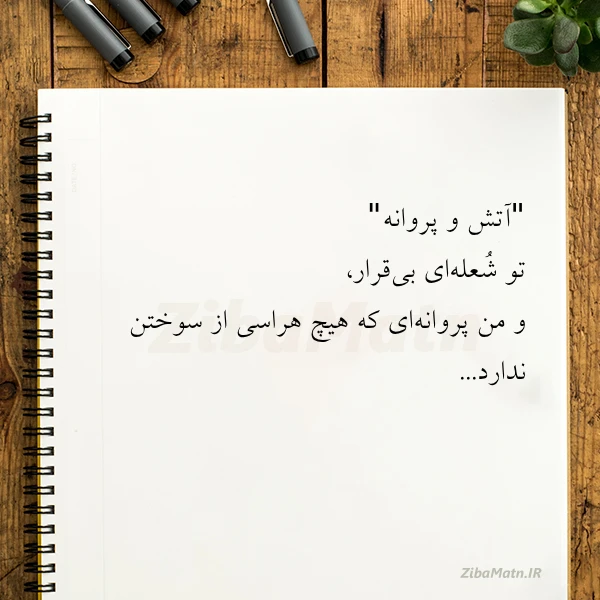 "آتش و پروانه"
تو شُعله‌ای بی‌قرار،
و من پروانه‌ای که هیچ هراسی از سوختن
ندارد...
ZibaMatn
ZibaMatn.IR